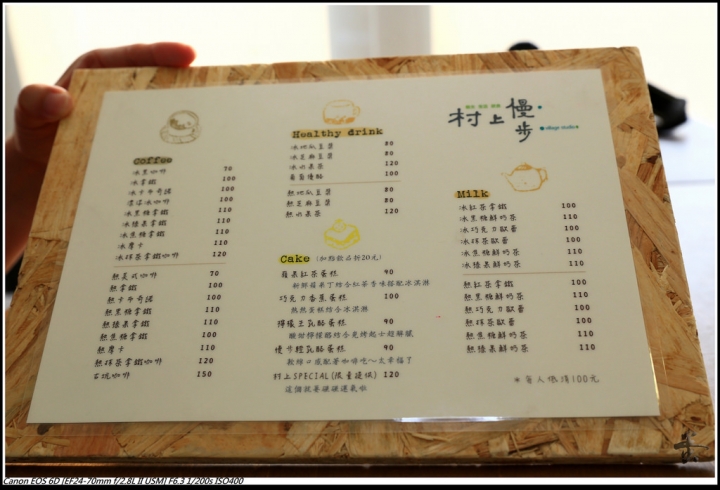 村上 慢步
village studio
Coffee
冰黑咖啡 70
冰拿鐵 100
冰卡布奇諾 100
漂浮冰咖啡 100
冰黑糖拿鐵 110
冰榛果拿鐵 110
冰焦糖拿鐵 110
冰摩卡 110
冰抹茶拿鐵咖啡 120
熱美式咖啡 70
熱拿鐵 100
熱卡布奇諾 100
熱黑糖拿鐵 110
熱榛果拿鐵 110
熱焦糖拿鐵 110
熱摩卡 110
熱抹茶拿鐵咖啡 120
右玩咖啡 150
Healthy drink
冰地瓜豆漿 80
冰芝麻豆漿 80
冰水果茶 120
葡萄優酪 100
熱地瓜豆漿 80
熱芝麻豆漿 80
熱水果茶 120
Cake (加點飲品折20元)
蘋果紅茶蛋糕 90
新鮮蘋果丁結合紅茶香味搭配冰淇淋
巧克力香蕉蛋糕 100
熱熱蛋糕結合冰淇淋
檸檬生乳酪蛋糕 90
酸甜檸檬餡結合免烤起士超解膩
慢步輕乳酪蛋糕 90
軟綿口感配著咖啡吃~太幸福了
村上SPECIAL(限量提供) 120
這個就要碰碰運氣啦
Milk
冰紅茶拿鐵 100
冰黑糖鮮奶茶 110
冰巧克力歐蕾 100
冰抹茶歐蕾 100
冰焦糖鮮奶茶 110
冰榛果鮮奶茶 110
熱紅茶拿鐵 100
熱黑糖鮮奶茶 110
熱巧克力歐蕾 100
熱抹茶歐蕾 100
熱焦糖鮮奶茶 110
熱榛果鮮奶茶 110
*每人低消100元
Canon EOS 6D [EF24-70mm f/2.8L II USM] F6.3 1/200s ISO400